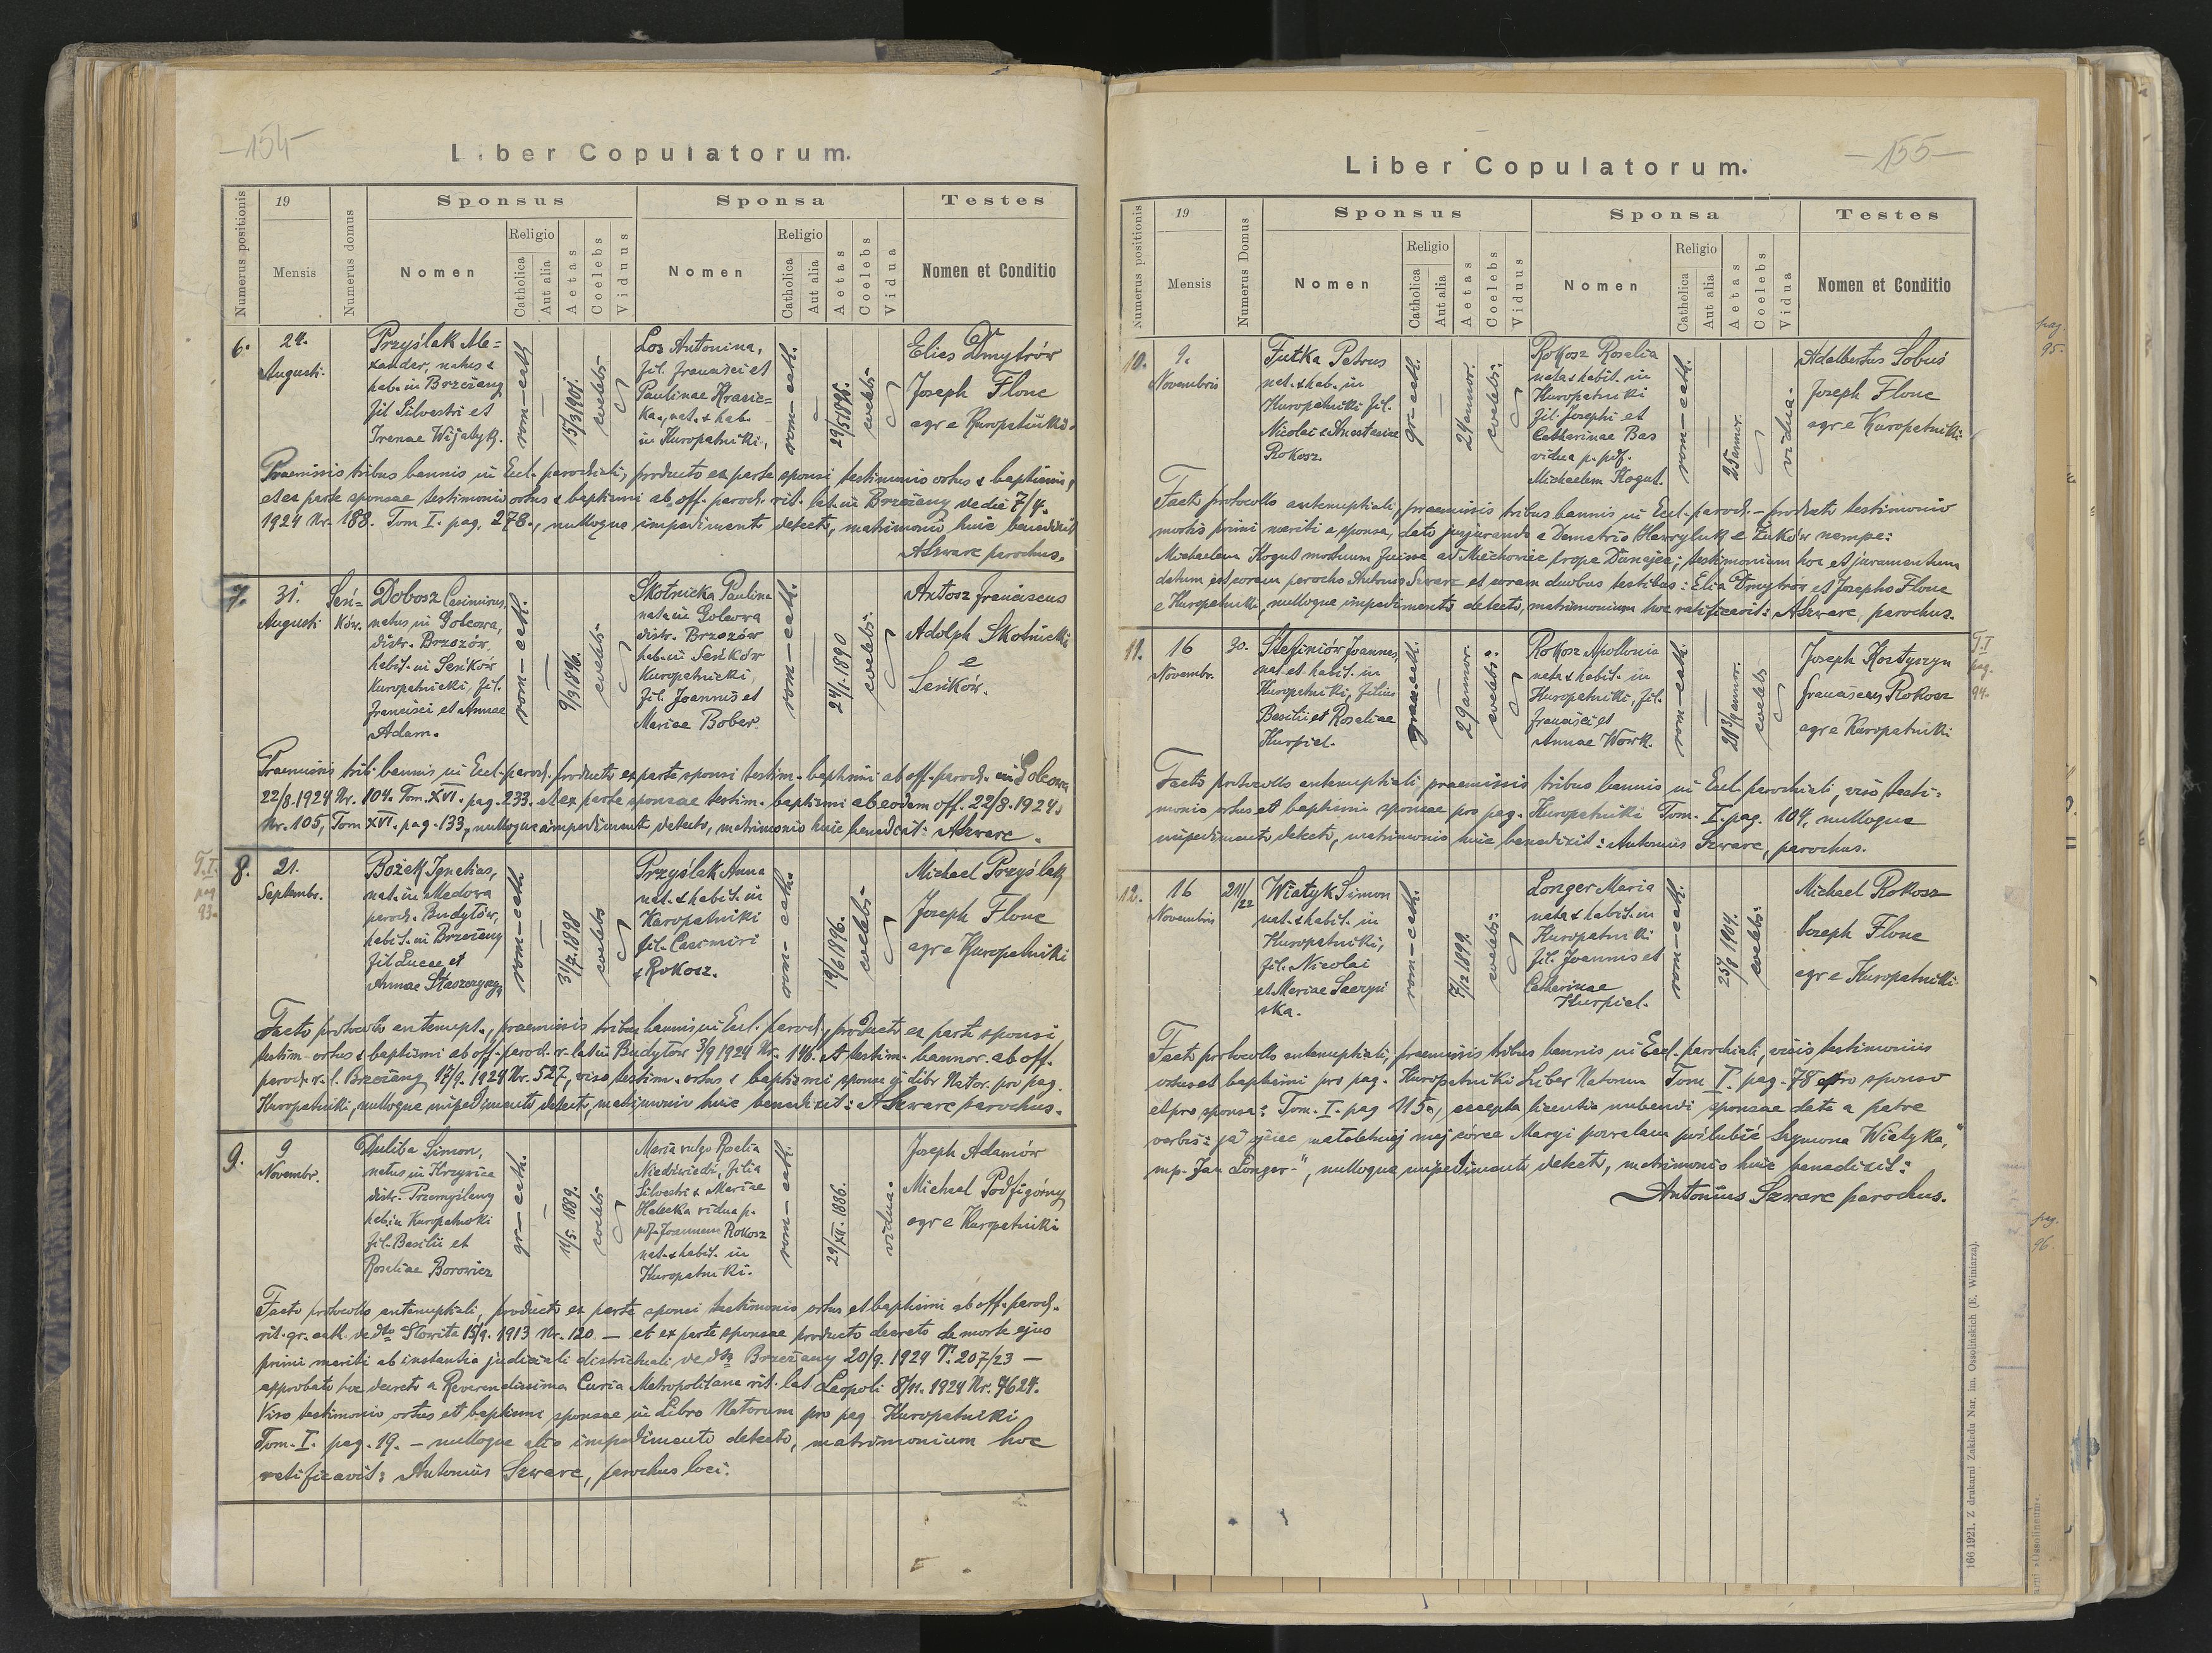 -154-
Liber Copulatorum.
Numerus positionis
19
Mensis
Numerus domus
Sponsus
Nomen
Religio
Catholica
Aut alia
Aetas
Coelebs
Viduus
Sponsa
Nomen
Religio
Catholica
Aut alia
Aetas
Coelebs
Vidua
Testes
Nomen et Conditio
6.
24.
Augusti.
Przyślak Ale=
xander, natus &
hab. in Brzeżany
fil. Silvestri et
Irenae Wijatyk.
rom-cath
15/3 1901.
coelebs
Los Antonina,
fil. Francisci et
Paulinae Krasic=
ka, nat. & hab.
in Kuropatniki.
rom-cath.
29/5 1896.
coelebs
Elias Dmytrów
Joseph Flonc
agr e Kuropatniki.
Praemissis tribus bannis in Eccl. parochiali, producto ex parte sponsi testimonio ortus & baptismi,
et ex parte sponsae testimonio ortus & baptismi ab off. paroch. rit. lat. in Brzeżany de die 7/4.
1924 Nr. 188. Tom I. pag. 278., nulloque impedimento detecto, matrimonio huic benedixit
ASzwarc parochus.
7.
31.
Augusti
Seń=
ków.
Dobosz Casimirus,
natus in Golcowa,
distr. Brzozów,
habit. in Seńków
Kuropatnicki, fil.
Francisci et Annae
Adam.
rom-cath.
9/3 1896.
coelebs
Skotnicka Paulina
nata in Golcowa
distr. Brzozów
hab. in Seńków
Kuropatnicki,
fil. Joannis et
Mariae Bober.
rom-cath.
24/1. 1890
coelebs.
Antosz Franciscus
Adolph Skotnicki
e
Seńków.
Praemissis trib. bannis in Eccl. paroch. producto ex parte sponsi testim. baptismi ab off. paroch. in Golcowa
22/8. 1924 Nr. 104. Tom. XVI. pag. 233. et ex parte sponsae testim. baptismi ab eodem off. 22/8. 1924.
Nr. 105, Tom XVI. pag. 133, nulloque impedimento detecto, matrimonio huic benedixit: ASzwarc.
T. I.
pag
93.
8.
21.
Septembr.
Bożek Ignatius,
nat. in Madowa
paroch. Budyłów,
habit. in Brzeżany
fil. Lucae et
Annae
rom-cath
31/7. 1898
coelebs
Przyślak Anna
nat. & habit. in
Kuropatniki
fil. Casimiri
& Rokosz.
rom-cath.
19/6 1896.
coelebs
Michael Przyślak
Joseph Flonc
agr e Kuropatniki
Facto protocollo antenupt., praemissis tribus bannis in Eccl. paroch., producto ex parte sponsi
testim. ortus & baptismi ab off. paroch. r. lat. in Budyłów 3/9 1924 Nr. 146. et testim. bannor. ab off.
paroch. r. l. Brzeżany 17/9. 1924 Nr. 527, viso testim. ortus & baptismi sponsae ij libr Nator. pro pag.
Kuropatniki, nulloque impedimento detecto, matrimonio huic benedixit: ASzwarc parochus.
9.
9
Novembr.
Duliba Simon,
natus in Krzywice
distr. Przemyślany
hab. in Kuropatniki
fil. Basilii et
Rosaliae Borowicz
gr-cath.
11/5. 1889.
coelebs
Maria vulgo Rosalia
Niedźwiedź, filia
Silvestri & Mariae
Halecka vidua p.
pdf. Joannem Rokosz
nat. & habit. in
Kuropatniki.
rom-cath.
29/XII. 1886.
vidua.
Joseph Adamów
Michael Podfigórny
agr e Kuropatniki
Facto protocollo antenuptiali, producto ex parte sponsi testimonio ortus et baptismi ab off. paroch.
rit. gr. cath. de dto Słowita 15/9. 1913 Nr. 120. — et ex parte sponsae producto decreto de morte ejus
primi mariti ab instantia judiciali districtuali de dto Brzeżany 20/9. 1924 T. 207/23 —
approbato hoc decreto a Reverendissima Curia Metropolitana rit. lat Leopoli 8/11. 1924 Nr. 9624.
Viso testimonio ortus et baptismi sponsae in Libro Natorum pro pag. Kuropatniki
Tom. I. pag. 19. — nulloque alio impedimento detecto, matrimonium hoc
ratificavit: Antonius Szwarc, parochus loci.
-155-
Liber Copulatorum.
Numerus positionis
19
Mensis
Numerus Domus
Sponsus
Nomen
Religio
Catholica
Aut alia
Aetas
Coelebs
Viduus
Sponsa
Nomen
Religio
Catholica
Aut alia
Aetas
Coelebs
Vidua
Testes
Nomen et Conditio
pag.
95.
10.
9.
Novembris
Futka Petrus
nat. & hab. in
Kuropatniki fil.
Nicolai & Anastasiae
Rokosz.
gr-cath.
24 annor.
coelebs.
Rokosz Rosalia
nata & habit. in
Kuropatniki
fil. Josephi et
Catharinae Bas
vidua p. pdf.
Michaelem Kogut.
rom-cath.
25 annor.
vidua.
Adalbertus Sobuś
Joseph Flonc
agr e Kuropatniki
Facto protocollo antenuptiali, praemissis tribus bannis in Eccl. paroch. — producto testimonio
mortis primi mariti a sponsa, dato jurjurando a Demetrio Hawryluk e Żuków nempe:
Michaelem Kogut mortuum fuisse ad Miechowice prope Dunajec; testimonium hoc et juramentum
datum est coram parocho Antonio Szwarc et coram duobus testibus: Elia Dmytrów et Josepho Flonc
e Kuropatniki, nulloque impedimento detecto, matrimonium hoc ratificavit: ASzwarc, parochus.
11.
16
Novembr.
30.
Stefiniów Joannes,
nat. et habit. in
Kuropatniki, filius
Basilii et Rosaliae
Kurpiel.
graec-cath.
29 annor.
coelebs.
Rokosz Apollonia
nata & habit. in
Kuropatniki, fil.
Francisci et
Annae Wowk.
rom-cath.
20 3/4 annor.
coelebs
Joseph Kostyszyn
Franciscus Rokosz
agr e Kuropatniki
T. I
pag.
94.
Facto protocollo antenuptiali, praemissis tribus bannis in Eccl. parochiali, viso testi=
monio ortus et baptismi sponsae pro pag. Kuropatniki Tom. I. pag. 104, nulloque
impedimento detecto, matrimonio huic benedixit: Antonius Szwarc, parochus.
12.
16
Novembris
211/22
Wiatyk Simon
nat. & habit. in
Kuropatniki,
fil. Nicolai
et Mariae Saczyń
ska.
rom-cath.
7/12 1899.
coelebs.
Longer Maria
nata & habit. in
Kuropatniki
fil. Joannis et
Catharinae
Kurpiel.
rom-cath.
25/8 1904.
coelebs.
Michael Rokosz
Joseph Flonc
agr e Kuropatniki
Facto protocollo antenuptiali, praemissis tribus bannis in Eccl. parochiali, visis testimoniis
ortus et baptismi pro pag. Kuropatniki Liber Natorum Tom I. pag. 78 pro sponso
et pro sponsa: Tom. I. pag 115., accepta licentia nubendi sponsae data a patre
verbis: "ja ojciec małoletniej mej córce Maryi pozwalam poślubić Szymona Wiatyka,
mp. Jan Longer-", nulloque impedimento detecto, matrimonio huic benedixit:
Antonius Szwarc parochus.
pag.
96.
166 1921. Z drukarni Zakładu Nar. im. Ossolińskich (E. Winiarza).